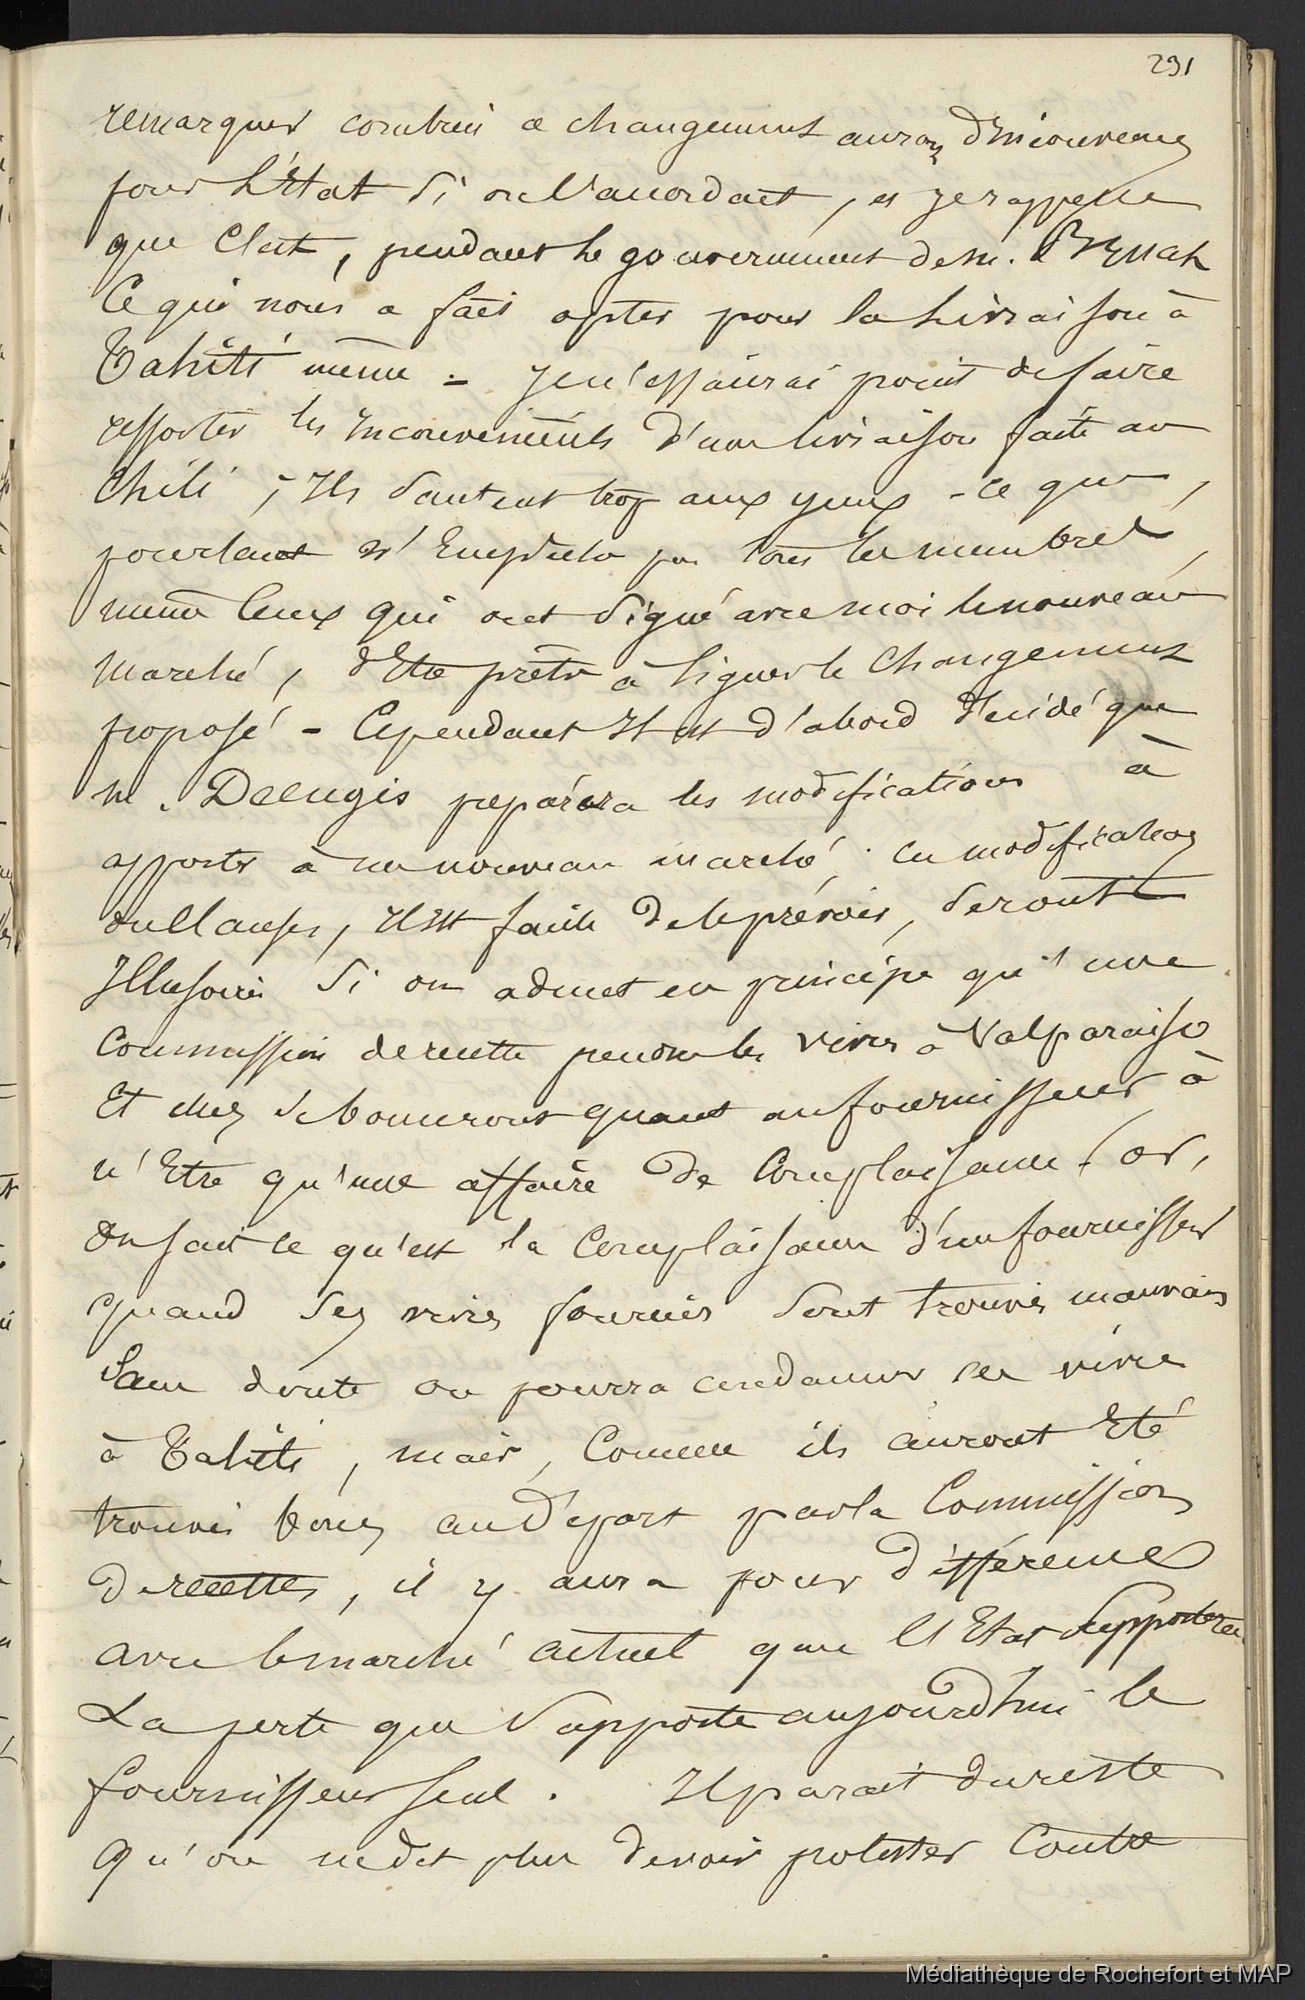 291
remarquer combien ce changement auroit d'inconveniens
pour L'État si on l'accordait, et je rappelle
que C'est, pendant le gouvernement de M. Bruat
Ce qui nous a fait opter pour la Livraison à
Tahiti même - Je n'essaierai point de faire
ressortir les Inconveniénts d'une livraison faite au
Chili ; Ils sautent trop aux yeux - ce qui,
pourtant n'Empêche pas tous les membres,
même Ceux qui ont Signé avec moi le nouveau
Marché, d'Etre prêts à Signer le Changement
proposé - Cependant Il est d'abord décidé que
M. préparera les modifications à
apporter à un nouveau marché ; ces modifications
ou Clauses, Il Est facile de le prévoir, Seront
Illusoires Si on admet en principe qu'une
Commission de recette prendra les vivres à Valparaiso
Et elles se borneront quant au fournisseur à
n'Etre qu'une affaire de Complaisance / or,
On sait ce qu'est la Complaisance d'un fournisseur
quand Ses vivres fournis Sont trouvés mauvais
Sans doute on pourra condamner ces vivres
à Tahiti, mais, Comme ils auront Eté
trouvés bons au Départ par la Commission
De recettes, il y aura pour différence
avec le marché actuel que l'Etat Supportera
La perte que Supporte aujourd'hui le
fournisseur Seul. Il parait du reste
qu'on ne doit plus devoir protester Contre
Médiathèque de Rochefort et MAP